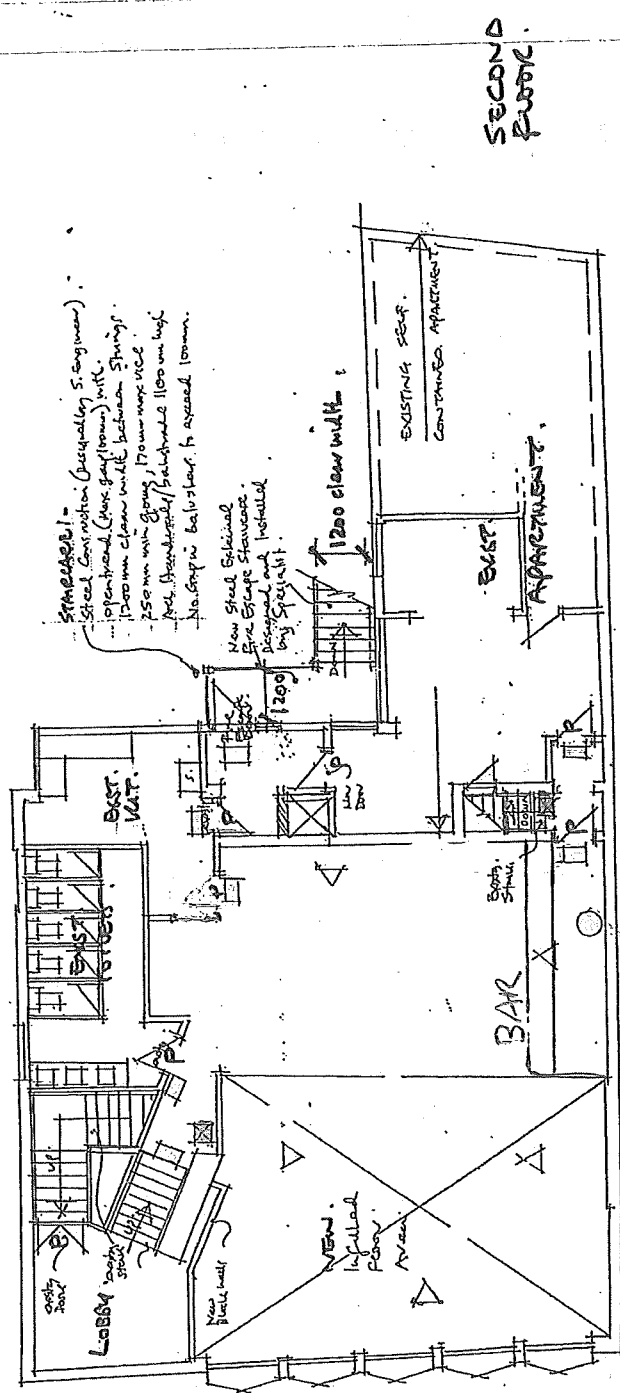 SECOND
FLOOR.
STAIRCASE:-
Steel Construction (Designed by S. Engineer).
open tread (Max. gap 100mm) with
1200mm clear width between strings.
250mm min going, 170mm max rise
Handrail/balustrade 1100mm high
No Gap in balusters to exceed 100mm.
New Steel External
Fire Escape Staircase.
Designed and Installed
by Specialist.
1200 clear width.
1200
DOWN
Fire
Escape
EXISTING SELF.
CONTAINED APARTMENT
EXIST.
APARTMENT.
EXIST.
KIT.
S.
EXIST
TOILETS
UP
LOBBY
Existg
Door
Existg
Stair
UP
New
Block wall
NEW.
Infilled
Floor.
Area
BAR
Existg.
Stair.
DOWN